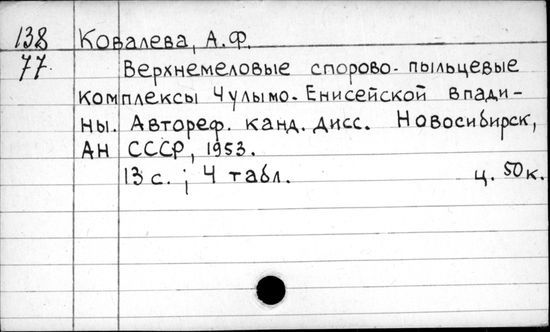 138 Ковалева, А.Ф.
77. Верхнемеловые спорово-пыльцевые
комплексы Чулымо-Енисейской впади-
ны. Автореф. канд. дисс. Новосибирск,
АН СССР, 1953.
13 с. ; 4 табл. ц. 50 к.